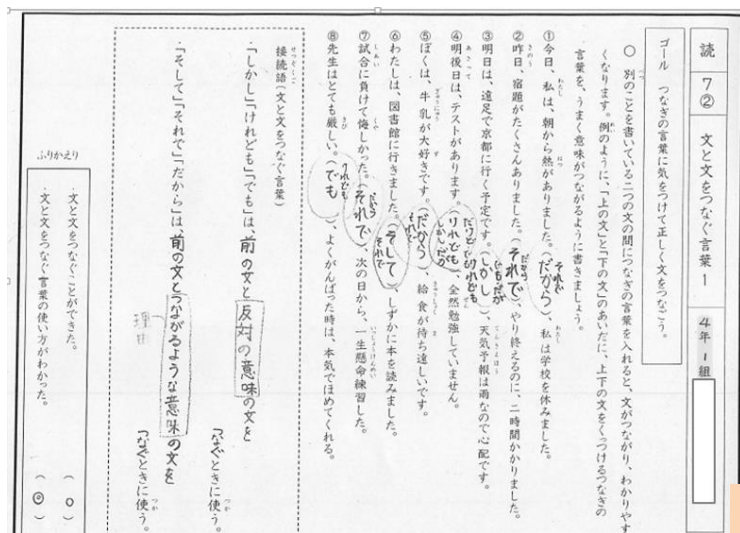 読 7② 文と文をつなぐ言葉1 4年1組
ゴール つなぎの言葉に気をつけて正しく文をつなごう。
○ 別のことを書いている二つの文の間につなぎの言葉を入れると、文がつながり、わかりやす
くなります。例のように、「上の文」と「下の文」のあいだに、上下の文をくっつけるつなぎの
言葉を、うまく意味がつながるように書きましょう。
①今日、私は、朝から熱がありました。(だから)、私は学校を休みました。
それで
②昨日、宿題がたくさんありました。(それで)、やり終えるのに、二時間かかりました。
だから
③明日は、遠足で京都に行く予定です。(しかし)、天気予報は雨なので心配です。
でも だが けれども
④明後日は、テストがあります。(けれども)、全然勉強していません。
だけど でも しかし だが
⑤ぼくは、牛乳が大好きです。(だから)、給食が待ち遠しいです。
それで
⑥わたしは、図書館に行きました。(そして)、しずかに本を読みました。
それで
⑦試合に負けて悔しかった。(それで)、次の日から、一生懸命練習した。
だから
⑧先生はとても厳しい。(でも)、よくがんばった時は、本気でほめてくれる。
けれども
接続語(文と文をつなぐ言葉)
・「しかし」「けれども」「でも」は、前の文と反対の意味の文を
つなぐときに使う。
・「そして」「それで」「だから」は、前の文とつながるような意味の文を
理由
つなぐときに使う。
ふりかえり
・文と文をつなぐことができた。 (○)
・文と文をつなぐ言葉の使い方がわかった。 (◎)